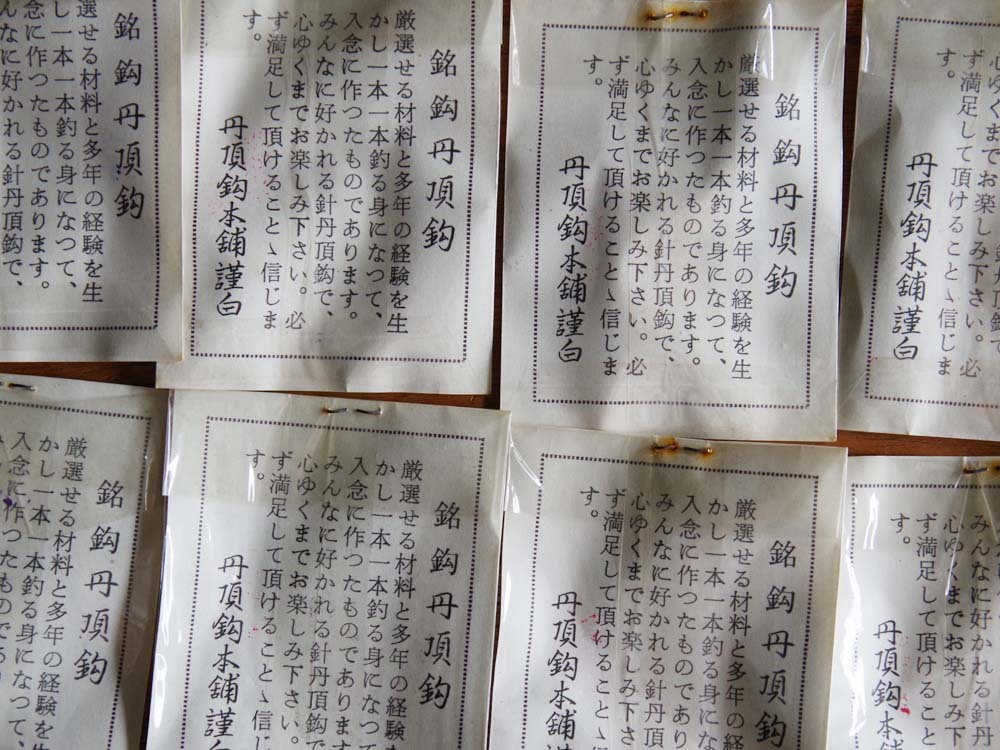 銘鈎丹頂鈎
選せる材料と多年の経験を生
し一本一本釣る身になつて、
念に作つたものであります。
んなに好かれる針丹頂鈎で、
銘鈎丹頂鈎
厳選せる材料と多年の経験を生
かし一本一本釣る身になつて、
入念に作つたものであります。
みんなに好かれる針丹頂鈎で、
心ゆくまでお楽しみ下さい。必
ず満足して頂けることゝ信じま
す。
丹頂鈎本舗謹白
銘鈎丹頂鈎
厳選せる材料と多年の経験を生
かし一本一本釣る身になつて、
入念に作つたものであります。
みんなに好かれる針丹頂鈎で、
心ゆくまでお楽しみ下さい。必
ず満足して頂けることゝ信じま
す。
丹頂鈎本舗謹白
心ゆくまでお楽しみ下さい。必
ず満足して頂けることゝ信じま
す。
丹頂鈎本舗謹白
銘鈎丹頂鈎
厳選せる材料と多年の経験を生
かし一本一本釣る身になつて、
入念に作つたものであ
銘鈎丹頂鈎
厳選せる材料と多年の経験を生
かし一本一本釣る身になつて
入念に作つたものであります
みんなに好かれる針丹頂鈎で
心ゆくまでお楽しみ下さい。
ず満足して頂けることゝ信じ
す。
丹頂鈎本舗謹白
銘鈎丹頂鈎
厳選せる材料と多年の経験
かし一本一本釣る身に
入念に作つたものであり
みんなに好かれる針丹頂
心ゆくまでお楽しみ下
ず満足して頂けることゝ
す。
丹頂鈎本舗
みんなに好かれる針
心ゆくまでお楽しみ下
ず満足して頂けること
す。
丹頂鈎本舗